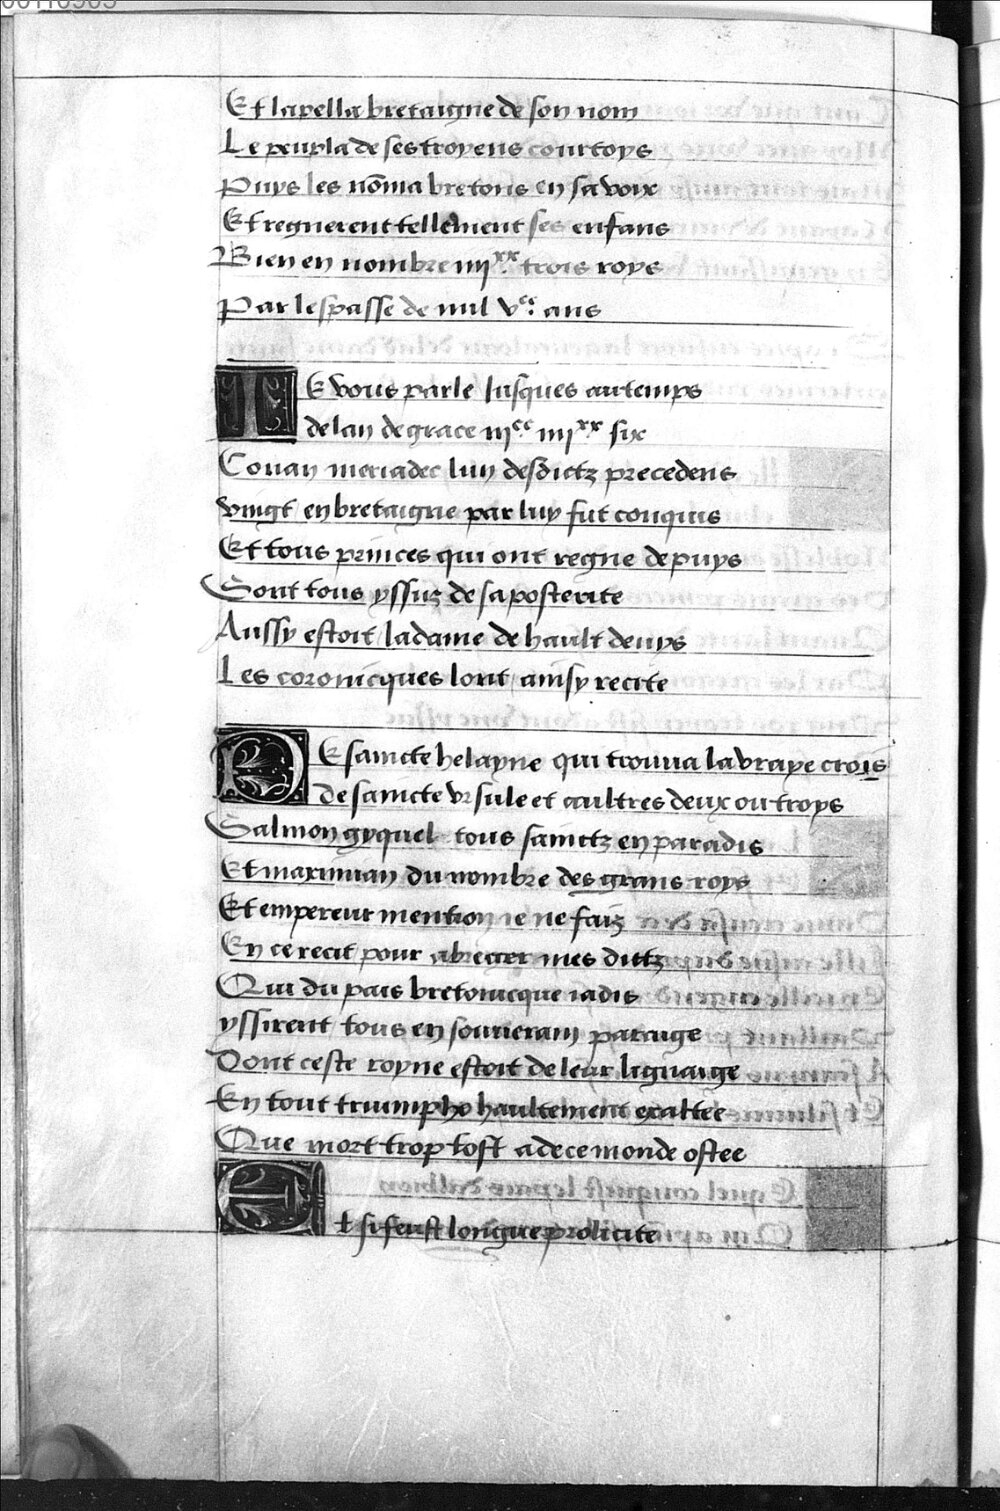 Et lapella bretaigne de son nom
Le peupla de ses troyens courtoys
Puys les nōma bretons en sa voix
Et regnerent tellement ses enfans
Bien en nombre iiijˣˣ trois roys
Par lespasse de mil vᶜˢ ans
IE vous parle jusques au temps
de lan de grace iijᶜᶜ iiijˣˣ six
Conan meriadec luy desdictz precedens
vingt en bretaigne par luy fut conquis
Et tous princes qui ont regne depuys
Sont tous yssuz de sa posterite
Aussy estoit la dame de hault denys
Les coronicques lont ainsy recite
DE saincte helayne qui trouua la vraye crois
de saincte vrsule et aultres deux ou troys
Salmon gyquel tous sainctz en paradis
Et maximian du nombre des grans roys
Et empereur mention ie ne faiz
En ce recit pour abreger mes dittz
Qui du pais bretonicque iadis
yssirent tous en souuerain paraige
Dont ceste royne estoit de leur lignaige
En tout triumphe haultement exaltee
Que mort trop tost a de ce monde ostee
Et si feust longue prolicite